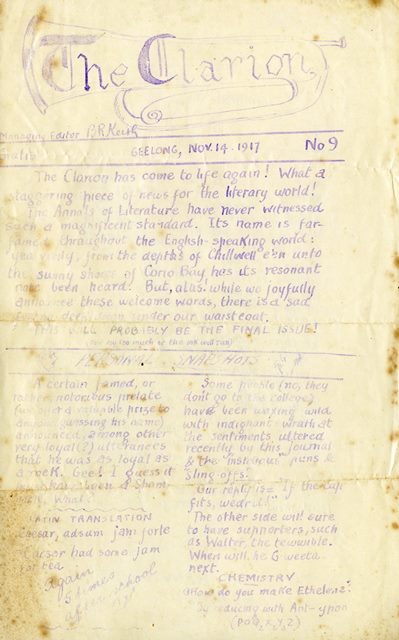 The Clarion
Managing Editor P.R. Keith
Gratis
GEELONG, NOV. 14. 1917 No 9
The Clarion has come to life again! What a
staggering piece of news for the literary world!
The Annals of Literature have never witnessed
such a magnificent standard. Its name is far-
famed throughout the English-speaking world:
yea verily, from the depths of Chillwell e'en unto
the sunny shores of Corio Bay has its resonant
note been heard! But, alas! while we joyfully
announce these welcome words, there is a sad
under our waistcoat,
THIS WILL PROBABLY BE THE FINAL ISSUE!
PERSONAL SNAPSHOTS
A certain famed, or
rather notorious prelate
a valuable prize to
anyone guessing his name)
announced, among other
very loyal(?) utterances
that he was as loyal as
a rock. Gee! I guess it
been a Sham-
rock, What?
LATIN TRANSLATION
Caesar, adsum jam forte
Caesar had some jam
for tea.
Again
5 times
after school
Some people (no, they
don't go to the college)
have been waxing wild
with indignant wrath at
the sentiments uttered
recently by this journal
& the "insidious" puns &
sling-offs.
Our reply is = "If the cap
fits, wear it!"
The other side will sure
to have supporters, such
as Walter, the tewwible.
When will he G-weeta
next.
CHEMISTRY
How do you make Ethelene?
By reducing with Ant-ypon